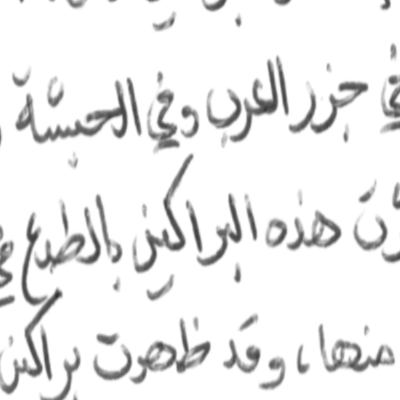 في جزر العرب وفي الحبشة
هذه البراكين بالطبع في
منها، وقد ظهرت براكين